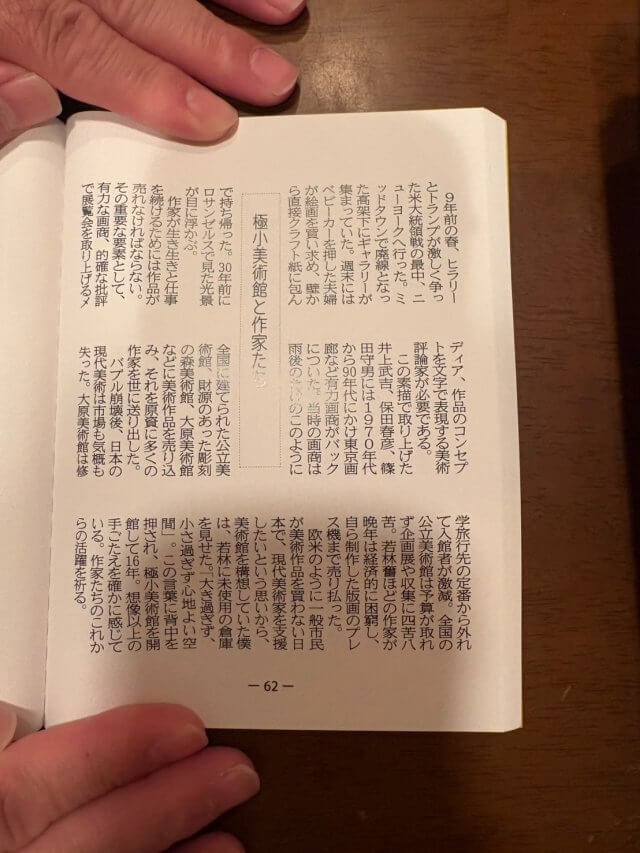 極小美術館と作家たち
９年前の春、ヒラリー
とトランプが激しく争っ
た米大統領戦の最中、ニ
ューヨークへ行った。ミ
ッドタウンで廃線となっ
た高架下にギャラリーが
集まっていた。週末には
ベビーカーを押した夫婦
が絵画を買い求め、壁か
ら直接クラフト紙に包ん
で持ち帰った。30年前に
ロサンゼルスで見た光景
が目に浮かぶ。
作家が生き生きと仕事
を続けるためには作品が
売れなければならない。
その重要な要素として、
有力な画商、的確な批評
で展覧会を取り上げるメ
ディア、作品のコンセプ
トを文字で表現する美術
評論家が必要である。
この素描で取り上げた
井上武吉、保田春彦、篠
田守男には１９７０年代
から90年代にかけ東京画
廊など有力画商がバック
についた。当時の画商は
雨後のたけのこのように
全国に建てられた公立美
術館、財源のあった彫刻
の森美術館、大原美術館
などに美術作品を売り込
み、それを原資に多くの
作家を世に送り出した。
バブル崩壊後、日本の
現代美術は市場も気概も
失った。大原美術館は修
学旅行先の定番から外れ
て入館者が激減。全国の
公立美術館は予算が取れ
ず企画展や収集に四苦八
苦。若林奮ほどの作家が
晩年は経済的に困窮し、
自ら制作した版画のプレ
ス機まで売り払った。
欧米のように一般市民
が美術作品を買わない日
本で、現代美術家を支援
したいという思いから、
美術館を構想していた僕
は、若林に未使用の倉庫
を見せた。「大き過ぎず、
小さ過ぎず心地よい空
間」。この言葉に背中を
押され、極小美術館を開
館して16年。想像以上の
手ごたえを確かに感じて
いる。作家たちのこれか
らの活躍を祈る。
― 62 ―